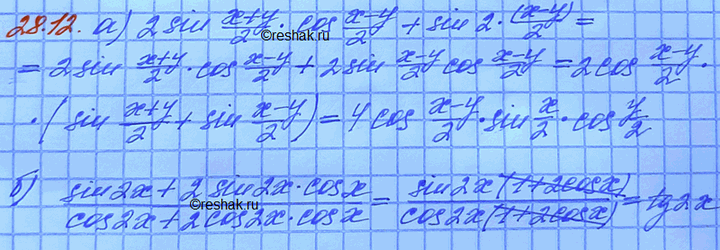 28.12. а) 2 sin (x+y)/2 · cos (x−y)/2 + sin 2 · (x−y)/2 =
= 2 sin (x+y)/2 · cos (x−y)/2 + 2 sin (x−y)/2 cos (x−y)/2 = 2 cos (x−y)/2 ·
· ( sin (x+y)/2 + sin (x−y)/2 ) = 4 cos (x−y)/2 · sin x/2 · cos y/2
б) (sin 2x + 2 sin 2x · cos x)/(cos 2x + 2 cos 2x · cos x) = (sin 2x (1+2cos x))/(cos 2x (1+2cos x)) = tg 2x